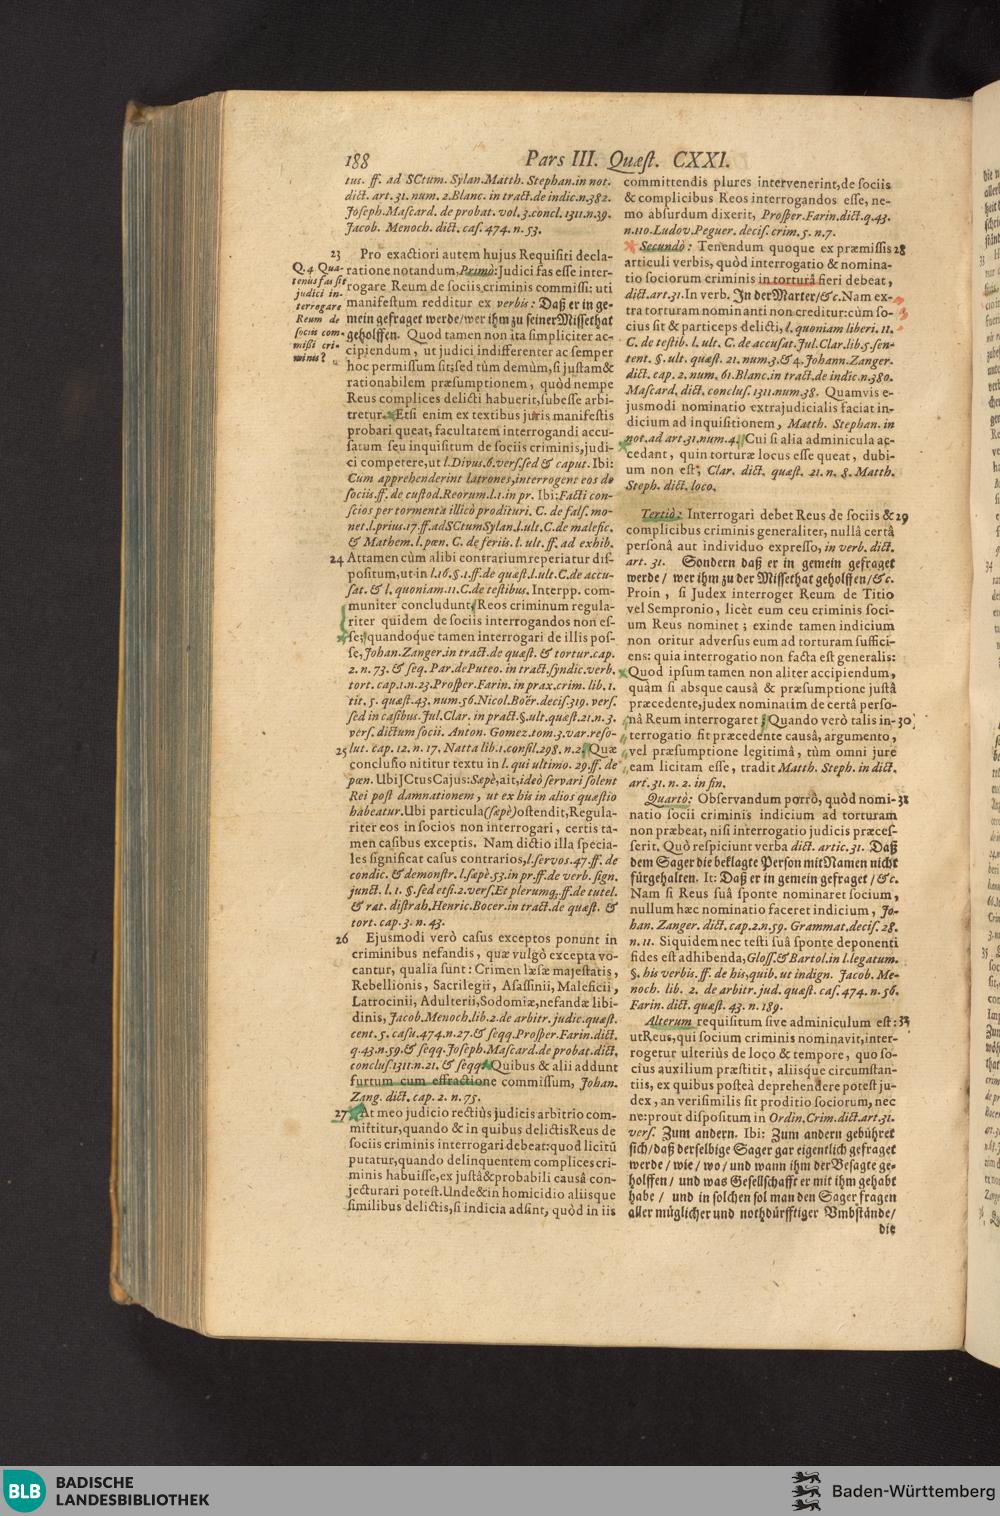 188
Pars III. Quæſt. CXXI.
tus. ff. ad SCtum. Sylan. Matth. Stephan. in not.
dict. art. 31. num. 2. Blanc. in tract. de indic. n. 382.
Joſeph. Maſcard. de probat. vol. 3. concl. 1311. n. 39.
Jacob. Menoch. dict. caſ. 474. n. 53.
23
Q. 4 Qua-
tenus fas ſit
judici in-
terrogare
Reum de
ſociis com-
miſſi cri-
minis?
Pro exactiori autem hujus Requiſiti decla-
ratione notandum, Primò: Judici fas eſſe inter-
rogare Reum de ſociis criminis commiſſi: uti
manifeſtum redditur ex verbis: Daß er in ge-
mein gefraget werde/ wer ihm zu ſeiner Miſſethat
geholffen. Quod tamen non ita ſimpliciter ac-
cipiendum, ut judici indifferenter ac ſemper
hoc permiſſum ſit; ſed tùm demùm, ſi juſtam &
rationabilem præſumptionem, quòd nempe
Reus complices delicti habuerit, ſubeſſe arbi-
tretur. Etſi enim ex textibus juris manifeſtis
probari queat, facultatem interrogandi accu-
ſatum ſeu inquiſitum de ſociis criminis, judi-
ci competere, ut l. Divus. 6. verſ. ſed & caput. Ibi:
Cum apprehenderint latrones, interrogent eos de
ſociis. ff. de cuſtod. Reorum. l. 1. in pr. Ibi: Facti con-
ſcios per tormenta illicò prodituri. C. de falſ. mo-
net. l. prius. 17. ff. ad SCtum Sylan. l. ult. C. de malefic.
& Mathem. l. pœn. C. de feriis. l. ult. ff. ad exhib.
24 Attamen cùm alibi contrarium reperiatur diſ-
poſitum, ut in l. 16. §. 1. ff. de quæſt. l. ult. C. de accu-
ſat. & l. quoniam. 11. C. de teſtibus. Interpp. com-
muniter concludunt, Reos criminum regula-
riter quidem de ſociis interrogandos non eſ-
ſe; quandoque tamen interrogari de illis poſ-
ſe, Johan. Zanger. in tract. de quæſt. & tortur. cap.
2. n. 73. & ſeq. Par. de Puteo. in tract. ſyndic. verb.
tort. cap. 1. n. 23. Proſper. Farin. in prax. crim. lib. 1.
tit. 5. quæſt. 43. num. 56. Nicol. Boër. deciſ. 319. verſ.
ſed in caſibus. Jul. Clar. in pract. §. ult. quæſt. 21. n. 3.
verſ. dictum ſocii. Anton. Gomez. tom. 3. var. reſo-
25 lut. cap. 12. n. 17. Natta lib. 1. conſil. 298. n. 2. Quæ
concluſio nititur textu in l. qui ultimo. 29. ff. de
pœn. Ubi JCtus Cajus: Sæpè, ait, ideò ſervari ſolent
Rei poſt damnationem, ut ex his in alios quæſtio
habeatur. Ubi particula (ſæpè) oſtendit, Regula-
riter eos in ſocios non interrogari, certis ta-
men caſibus exceptis. Nam dictio illa ſpecia-
les ſignificat caſus contrarios, l. ſervos. 47. ff. de
condic. & demonſtr. l. ſæpè. 53. in pr. ff. de verb. ſign.
junct. l. 1. §. ſed etſi. 2. verſ. Et plerumq; ff. de tutel.
& rat. diſtrah. Henric. Bocer. in tract. de quæſt. &
tort. cap. 3. n. 43.
26 Ejusmodi verò caſus exceptos ponunt in
criminibus nefandis, quæ vulgò excepta vo-
cantur, qualia ſunt: Crimen læſæ majeſtatis,
Rebellionis, Sacrilegii, Aſaſſinii, Maleficii,
Latrocinii, Adulterii, Sodomiæ, nefandæ libi-
dinis, Jacob. Menoch. lib. 2. de arbitr. judic. quæſt.
cent. 5. caſu. 474. n. 27. & ſeqq. Proſper. Farin. dict.
q. 43. n. 59. & ſeqq. Joſeph. Maſcard. de probat. dict.
concluſ. 1311. n. 21. & ſeqq. Quibus & alii addunt
furtum cum effractione commiſſum, Johan.
Zang. dict. cap. 2. n. 75.
27 At meo judicio rectiùs judicis arbitrio com-
mittitur, quando & in quibus delictis Reus de
ſociis criminis interrogari debeat: quod licitū
putatur, quando delinquentem complices cri-
minis habuiſſe, ex juſtâ & probabili causâ con-
jecturari poteſt. Unde & in homicidio aliisque
ſimilibus delictis, ſi indicia adſint, quòd in iis
committendis plures intervenerint, de ſociis
& complicibus Reos interrogandos eſſe, ne-
mo abſurdum dixerit, Proſper. Farin. dict. q. 43.
n. 110. Ludov. Peguer. deciſ. crim. 5. n. 7.
Secundò: Tenendum quoque ex præmiſſis 28
articuli verbis, quòd interrogatio & nomina-
tio ſociorum criminis in torturâ fieri debeat,
dict. art. 31. In verb. In der Marter/ &c. Nam ex-
tra torturam nominanti non creditur: cùm ſo-
cius ſit & particeps delicti, l. quoniam liberi. 11.
C. de teſtib. l. ult. C. de accuſat. Jul. Clar. lib. 5. ſen-
tent. §. ult. quæſt. 21. num. 3. & 4. Johann. Zanger.
dict. cap. 2. num. 61. Blanc. in tract. de indic. n. 380.
Maſcard. dict. concluſ. 1311. num. 38. Quamvis e-
jusmodi nominatio extrajudicialis faciat in-
dicium ad inquiſitionem, Matth. Stephan. in
not. ad art. 31. num. 4. Cui ſi alia adminicula ac-
cedant, quin torturæ locus eſſe queat, dubi-
um non eſt, Clar. dict. quæſt. 21. n. 8. Matth.
Steph. dict. loco.
Tertiò: Interrogari debet Reus de ſociis & 29
complicibus criminis generaliter, nullâ certâ
perſonâ aut individuo expreſſo, in verb. dict.
art. 31. Sondern daß er in gemein gefraget
werde/ wer ihm zu der Miſſethat geholffen/ &c.
Proin, ſi Judex interroget Reum de Titio
vel Sempronio, licèt eum ceu criminis ſoci-
um Reus nominet; exinde tamen indicium
non oritur adverſus eum ad torturam ſuffici-
ens: quia interrogatio non facta eſt generalis:
Quod ipſum tamen non aliter accipiendum,
quàm ſi absque causâ & præſumptione juſtâ
præcedente, judex nominatim de certâ perſo-
nâ Reum interrogaret; Quando verò talis in- 30
terrogatio fit præcedente causâ, argumento,
vel præſumptione legitimâ, tùm omni jure
eam licitam eſſe, tradit Matth. Steph. in dict.
art. 31. n. 2. in fin.
Quartò: Obſervandum porrò, quòd nomi- 31
natio ſocii criminis indicium ad torturam
non præbeat, niſi interrogatio judicis præceſ-
ſerit. Quò reſpiciunt verba dict. artic. 31. Daß
dem Sager die beklagte Perſon mit Namen nicht
fürgehalten. It: Daß er in gemein gefraget/ &c.
Nam ſi Reus ſuâ ſponte nominaret ſocium,
nullum hæc nominatio faceret indicium, Jo-
han. Zanger. dict. cap. 2. n. 59. Grammat. deciſ. 28.
n. 11. Siquidem nec teſti ſuâ ſponte deponenti
fides eſt adhibenda, Gloſſ. & Bartol. in l. legatum.
§. his verbis. ff. de his, quib. ut indign. Jacob. Me-
noch. lib. 2. de arbitr. jud. quæſt. caſ. 474. n. 56.
Farin. dict. quæſt. 43. n. 189.
Alterum requiſitum ſive adminiculum eſt:
ut Reus, qui ſocium criminis nominavit, inter-
rogetur ulteriùs de loco & tempore, quo ſo-
cius auxilium præſtitit, aliisque circumſtan-
tiis, ex quibus poſteà deprehendere poteſt ju-
dex, an veriſimilis ſit proditio ſociorum, nec
ne: prout diſpoſitum in Ordin. Crim. dict. art. 31.
verſ. Zum andern. Ibi: Zum andern gebühret
ſich/ daß derſelbige Sager gar eigentlich gefraget
werde/ wie/ wo/ und wann ihm der Beſagte ge-
holffen/ und was Geſellſchafft er mit ihm gehabt
habe/ und in ſolchen ſol man den Sager fragen
aller müglicher und nothdürfftiger Umbſtände/
die
BLB
BADISCHE
LANDESBIBLIOTHEK
Baden-Württemberg